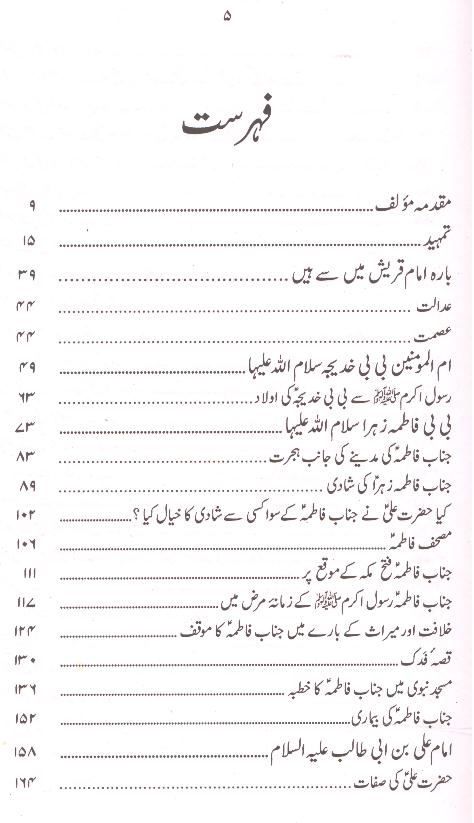 ۵
فہرست
مقدمہ مؤلف ........ ۹
تمہید ........ ۱۵
بارہ امام قریش میں سے ہیں ........ ۳۹
عدالت ........ ۴۴
عصمت ........ ۴۴
ام المومنین بی بی خدیجہ سلام اللہ علیہا ........ ۴۹
رسول اکرم ﷺ سے بی بی خدیجہؑ کی اولاد ........ ۶۳
بی بی فاطمہ زہرا سلام اللہ علیہا ........ ۷۳
جناب فاطمہؑ کی مدینے کی جانب ہجرت ........ ۸۳
جناب فاطمہ زہراؑ کی شادی ........ ۸۹
کیا حضرت علیؑ نے جناب فاطمہؑ کے سوا کسی سے شادی کا خیال کیا ؟ ........ ۱۰۲
مصحف فاطمہؑ ........ ۱۰۶
جناب فاطمہؑ فتح مکہ کے موقع پر ........ ۱۱۱
جناب فاطمہؑ رسول اکرم ﷺ کے زمانۂ مرض میں ........ ۱۱۷
خلافت اور میراث کے بارے میں جناب فاطمہؑ کا موقف ........ ۱۲۴
قصۂ فَدَک ........ ۱۳۰
مسجد نبوی میں جناب فاطمہؑ کا خطبہ ........ ۱۳۶
جناب فاطمہؑ کی بیماری ........ ۱۵۲
امام علی بن ابی طالب علیہ السلام ........ ۱۵۸
حضرت علیؑ کی صفات ........ ۱۶۴